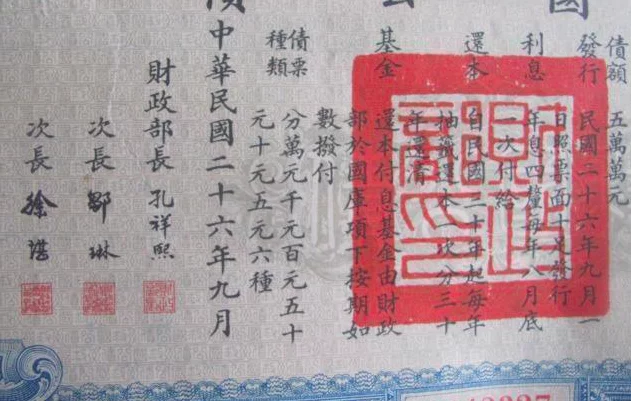 國
債
債額 五萬萬元
發行 民國二十六年九月一
日照票面十足發行
利息 年息四釐每年八月底
一次付給
還本 自民國三十年起每年
抽籤還本一次分三十
年還清
基金 還本付息基金由財政
部於國庫項下按期如
數撥付
債票 分萬元千元百元五十
種類 元十元五元六種
中華民國二十六年九月
財政部長 孔祥熙
次長 鄒琳
次長 徐堪